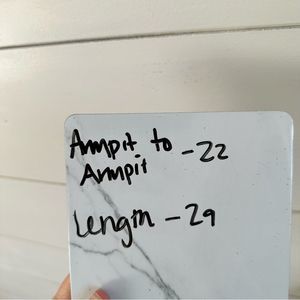 Armpit to
Armpit - 22
Length - 29